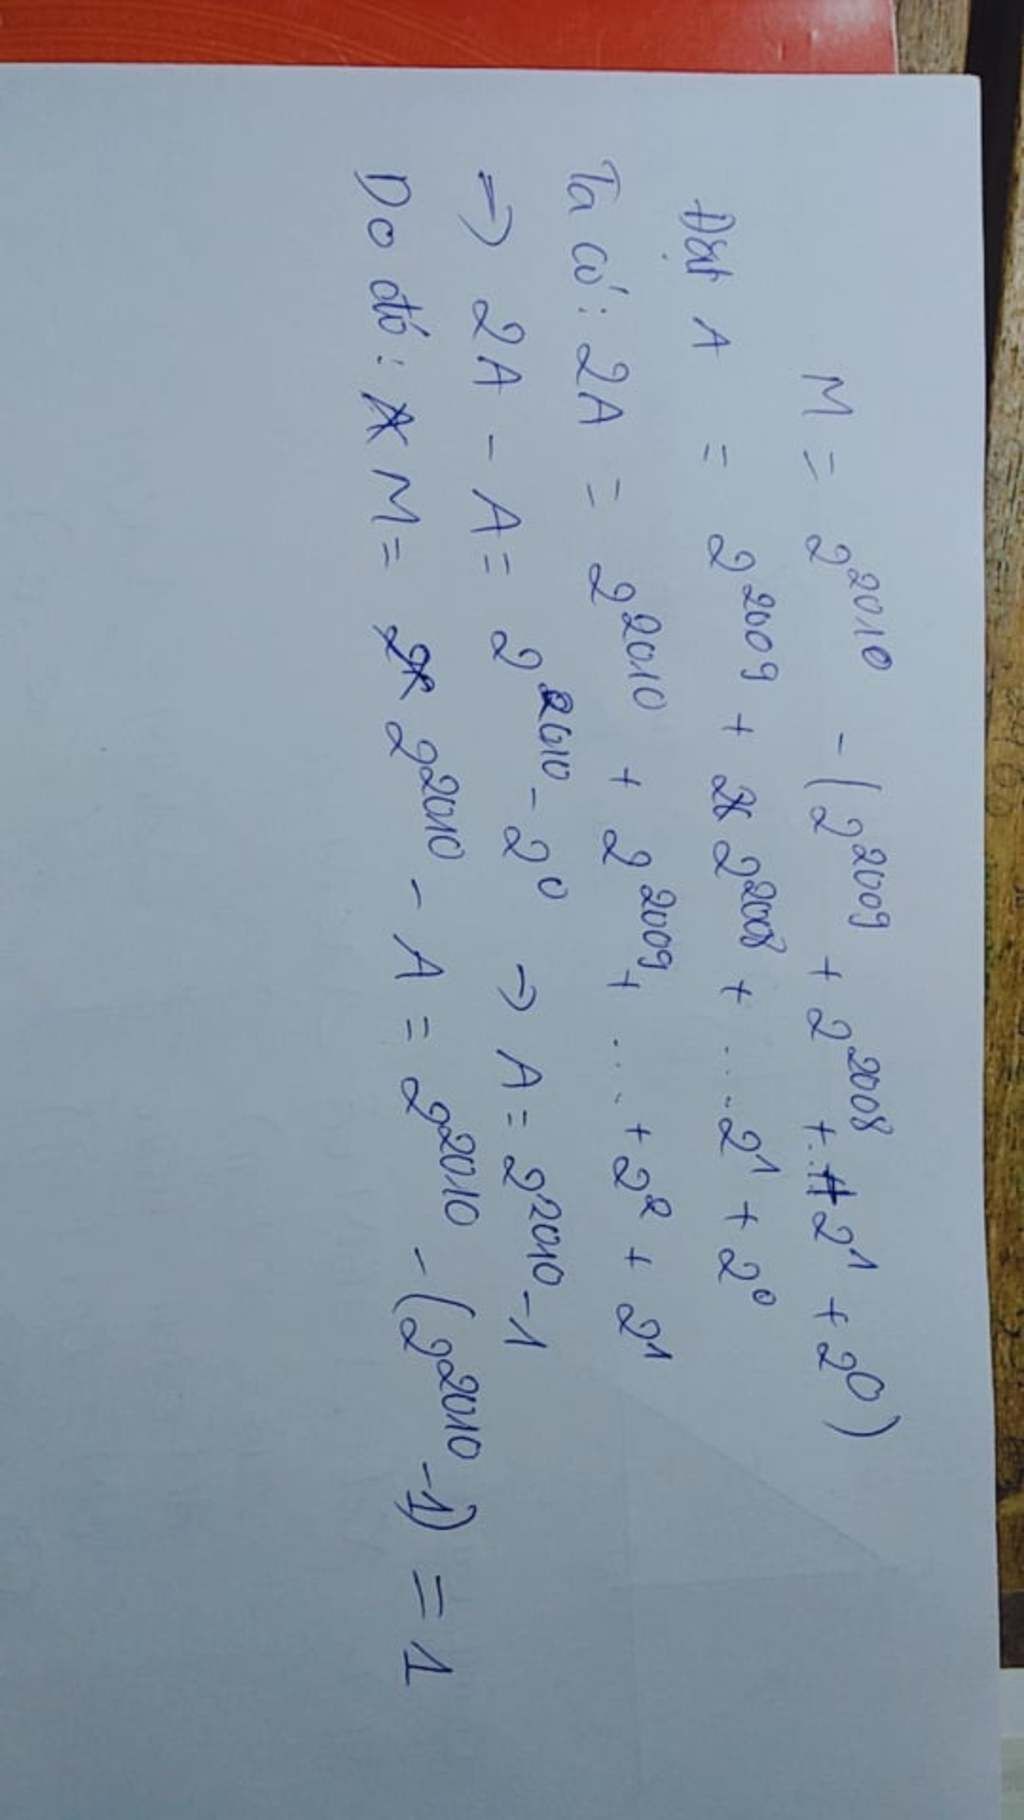 M = 2^2010 - (2^2009 + 2^2008 + ... + 2^1 + 2^0)
Đặt A = 2^2009 + 2^2008 + .... 2^1 + 2^0
Ta có: 2A = 2^2010 + 2^2009 + .... + 2^2 + 2^1
=> 2A - A = 2^2010 - 2^0 → A = 2^2010 - 1
Do đó: M = 2^2010 - A = 2^2010 - (2^2010 - 1) = 1